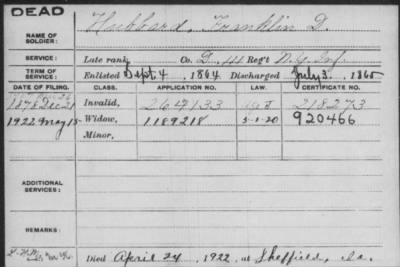 DEAD
NAME OF SOLDIER: Hubbard, Franklin D.
SERVICE: Late rank, Co. D, 44 Reg't N.Y. Inf.
TERM OF SERVICE: Enlisted Sept 4, 1864 Discharged July 3, 1865
DATE OF FILING. CLASS. APPLICATION NO. LAW. CERTIFICATE NO.
1878 Dec 21 Invalid, 264133 218273
1922 May 15 Widow, 1189218 5-1-20 920466
Minor,
ADDITIONAL SERVICES:
REMARKS:
Died April 24, 1922, at Sheffield, Ia.